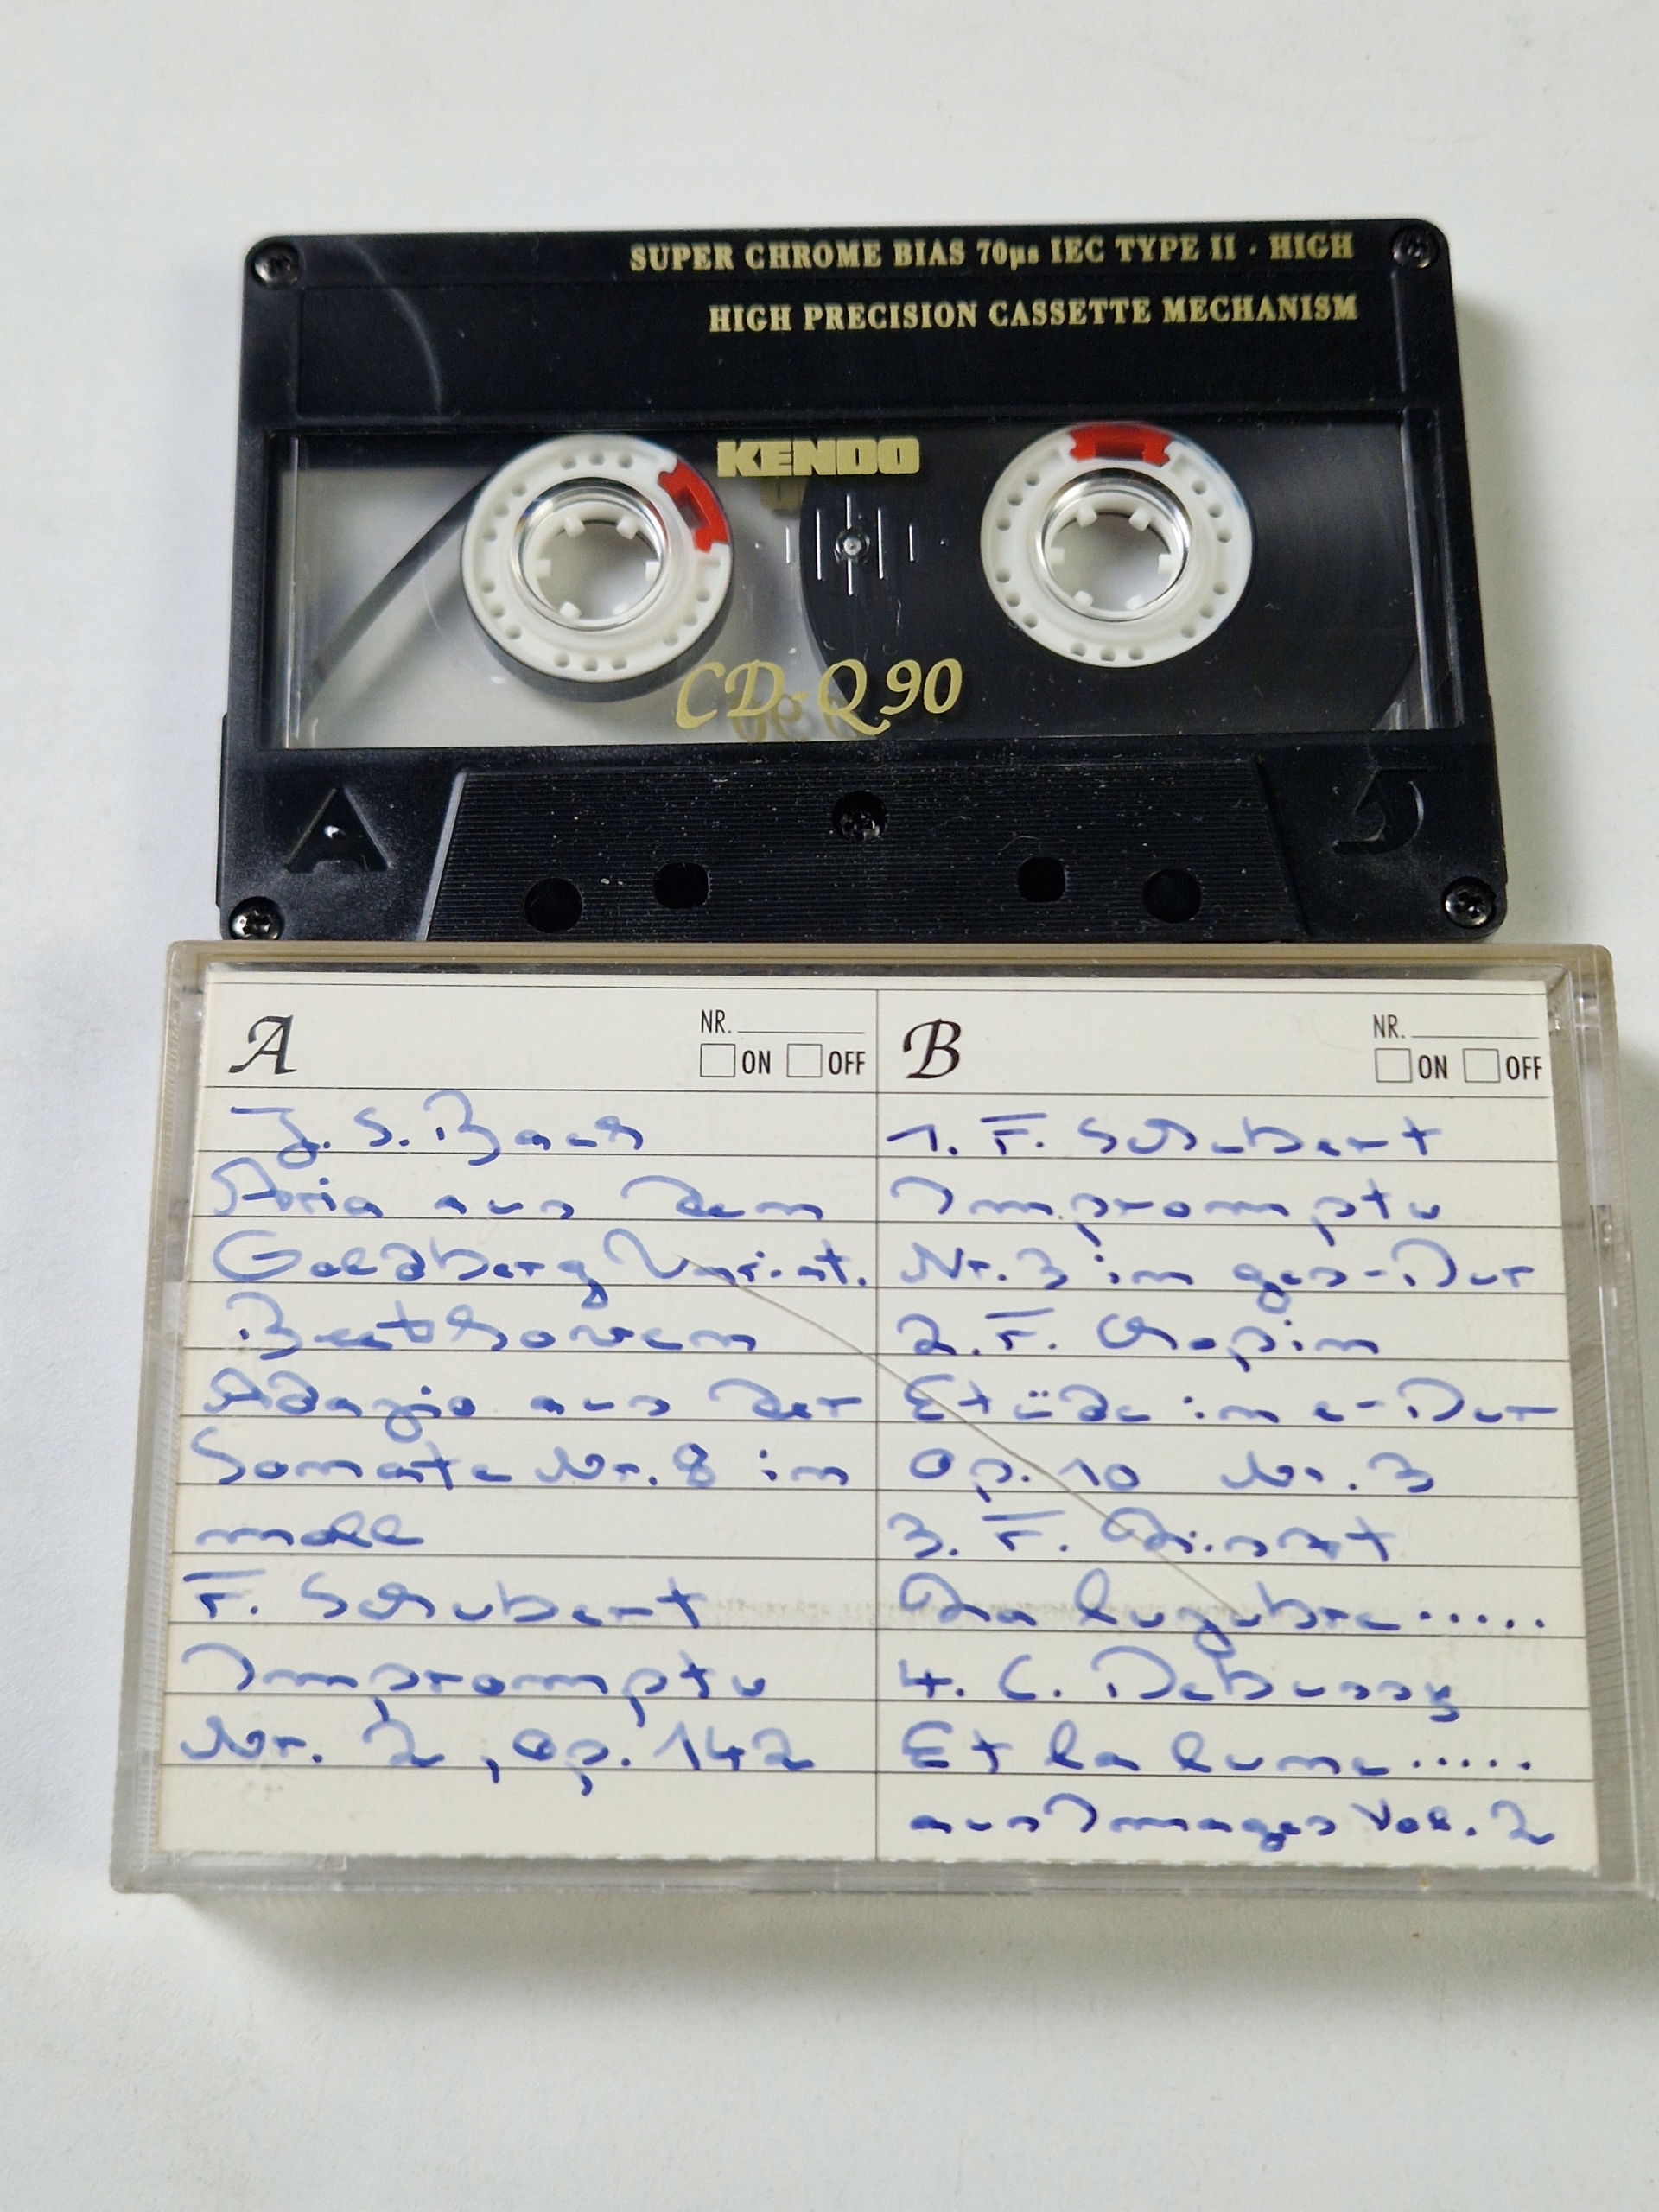 SUPER CHROME BIAS 70µs IEC TYPE II · HIGH
HIGH PRECISION CASSETTE MECHANISM
KENDO
CD-Q 90
A
A
NR.
ON OFF
J. S. Bach
Aria aus dem
Goldberg Variat.
Beethoven
Adagio aus der
Sonate Nr. 8 im
moll
F. Schubert
Impromptu
Nr. 2, op. 142
B
NR.
ON OFF
1. F. Schubert
Impromptu
Nr. 3 im ges-Dur
2. F. Chopin
Etüde im e-Dur
Op. 10 Nr. 3
3. F. Liszt
La lugubre.....
4. C. Debussy
Et la lune.....
aus Images Vol. 2